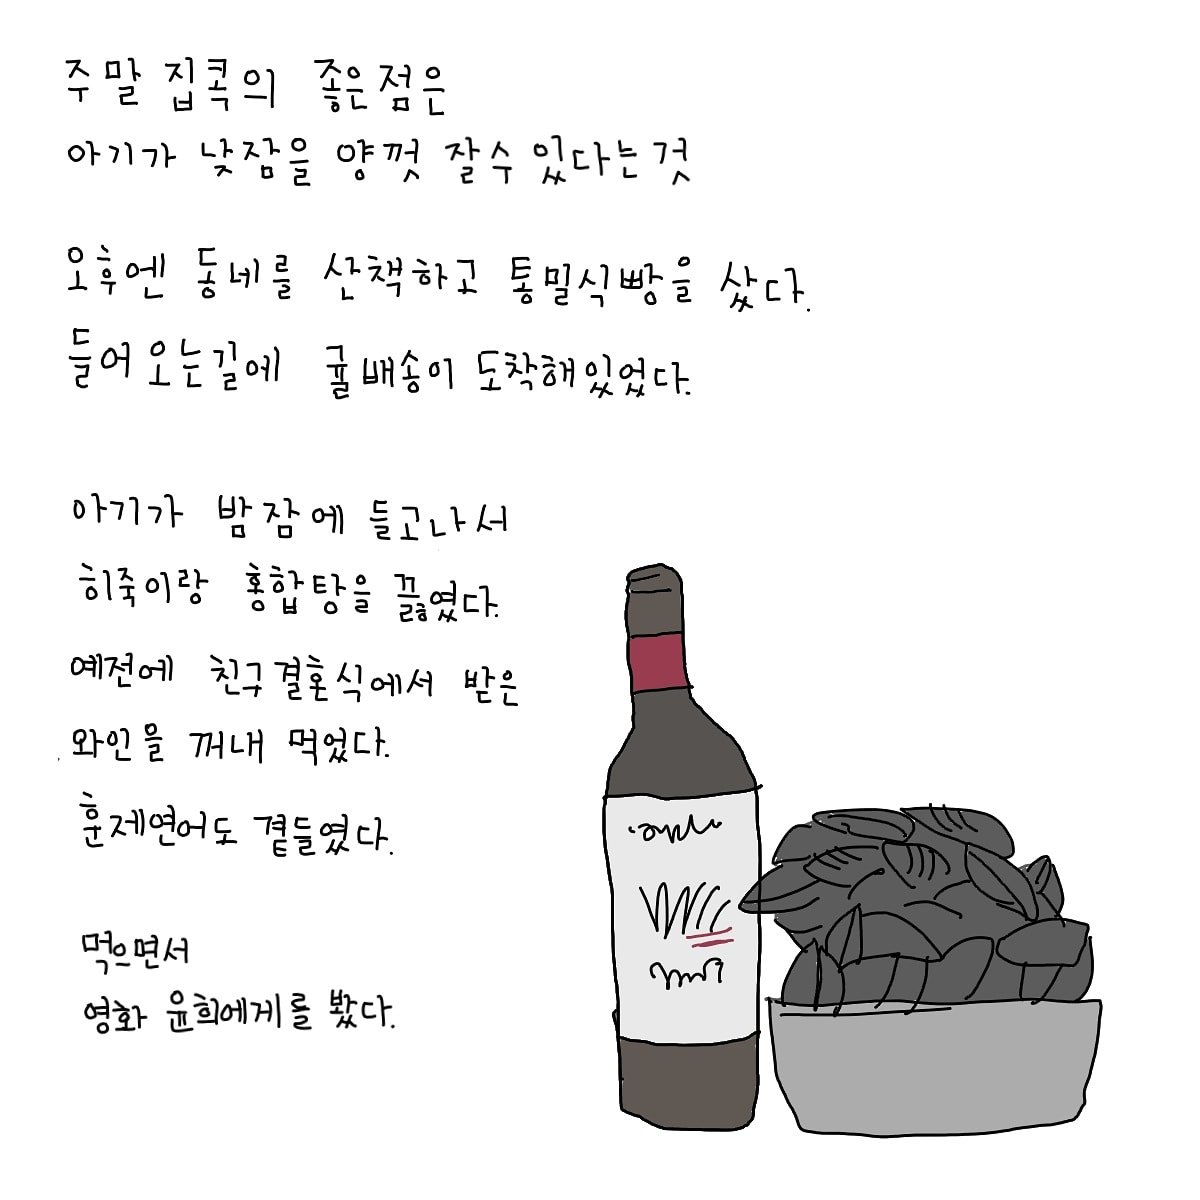 주말 집콕의 좋은점은
아기가 낮잠을 양껏 잘수 있다는것
오후엔 동네를 산책하고 통밀식빵을 샀다.
들어오는길에 귤배송이 도착해있었다.
아기가 밤잠에 들고나서
히죽이랑 홍합탕을 끓였다.
예전에 친구결혼식에서 받은
와인을 꺼내 먹었다.
훈제연어도 곁들였다.
먹으면서
영화 윤희에게를 봤다.